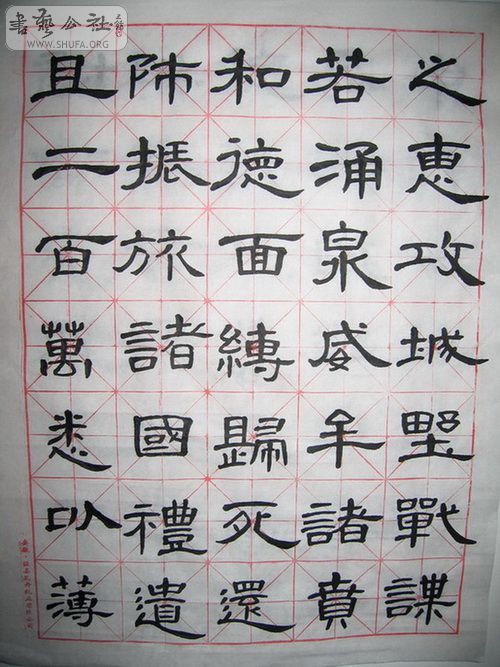 書藝公社
WWW.SHUFA.ORG
之惠攻城野戰謀
若涌泉威牟諸賁
和德面縛歸死還
師振旅諸國禮遺
且二百萬悉以薄